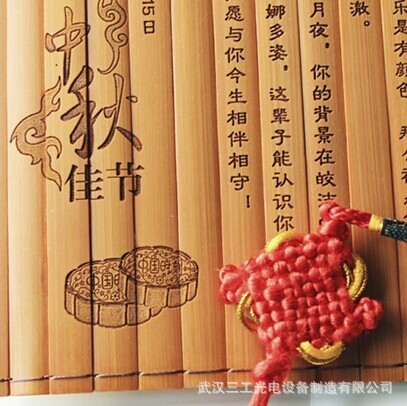 乐是有颜色
澈。
月夜，你的背景在皎洁
娜多姿，这辈子能认识你
愿与你今生相伴相守！
15日
中秋
佳节
中国
中国
武汉三工光电设备制造有限公司